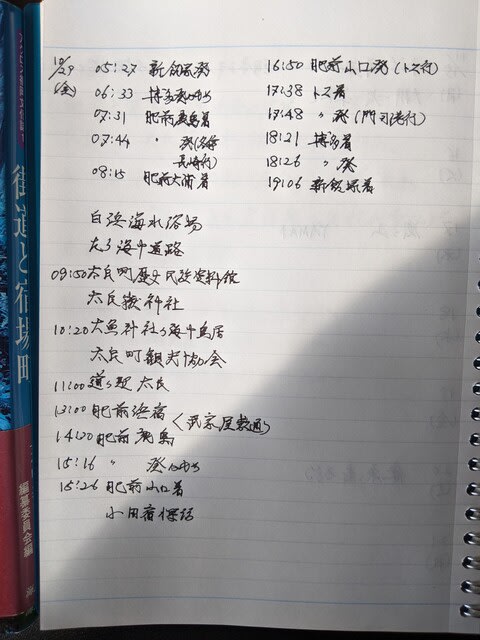 街道と宿場町
編纂委員会編
10/29
(金)
05:27 新飯塚発
06:33 博多発かもめ
07:31 肥前鹿島着
07:44 〃 発(各停
長崎行)
08:15 肥前大浦着
白浜海水浴場
たら海中道路
09:50 太良町歴史民族資料館
太良嶽神社
10:20 大魚神社の海中鳥居
太良町観光協会
11:00 道の駅 太良
13:00 肥前浜宿〈武家屋敷通〉
14:20 肥前鹿島
15:16 〃 発かもめ
15:26 肥前山口着
小田宿探訪
16:50 肥前山口発(トス行)
17:38 トス着
17:48 〃 発(門司港行)
18:21 博多着
18:26 〃 発
19:06 新飯塚着